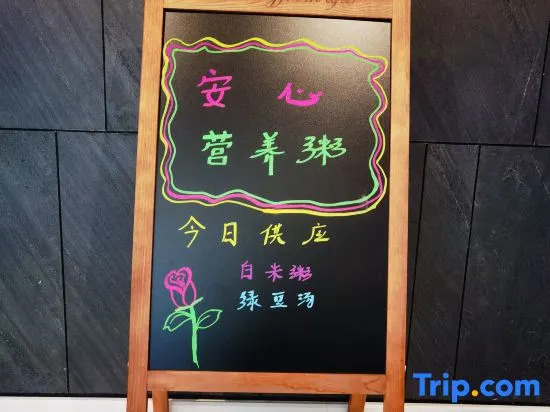 安心
营养粥
今日供应
白米粥
绿豆汤
Trip.com